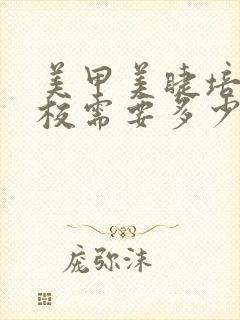 美甲美睫培
校需要多少
庞弥沫